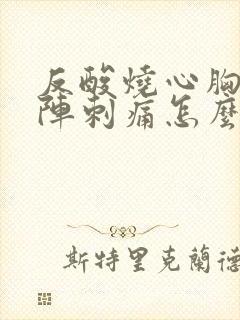 反酸燒心胸
陣刺痛怎麼
斯特里克蘭德